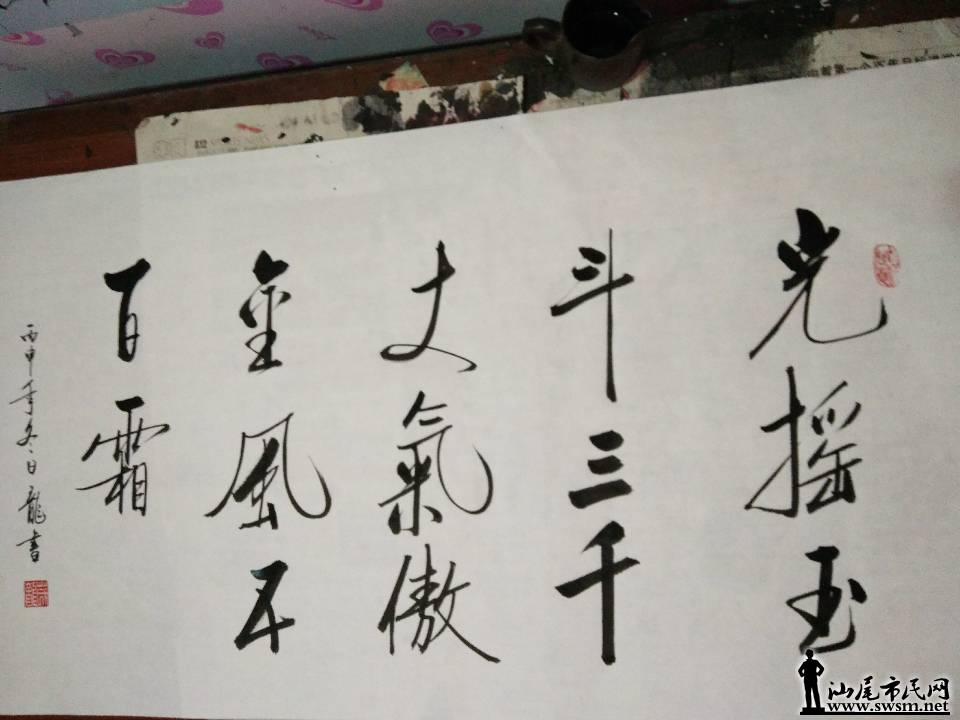 光摇玉
斗三千
丈氣傲
金風五
百霜
丙申年冬日龍書
汕尾市民网
www.swsm.net